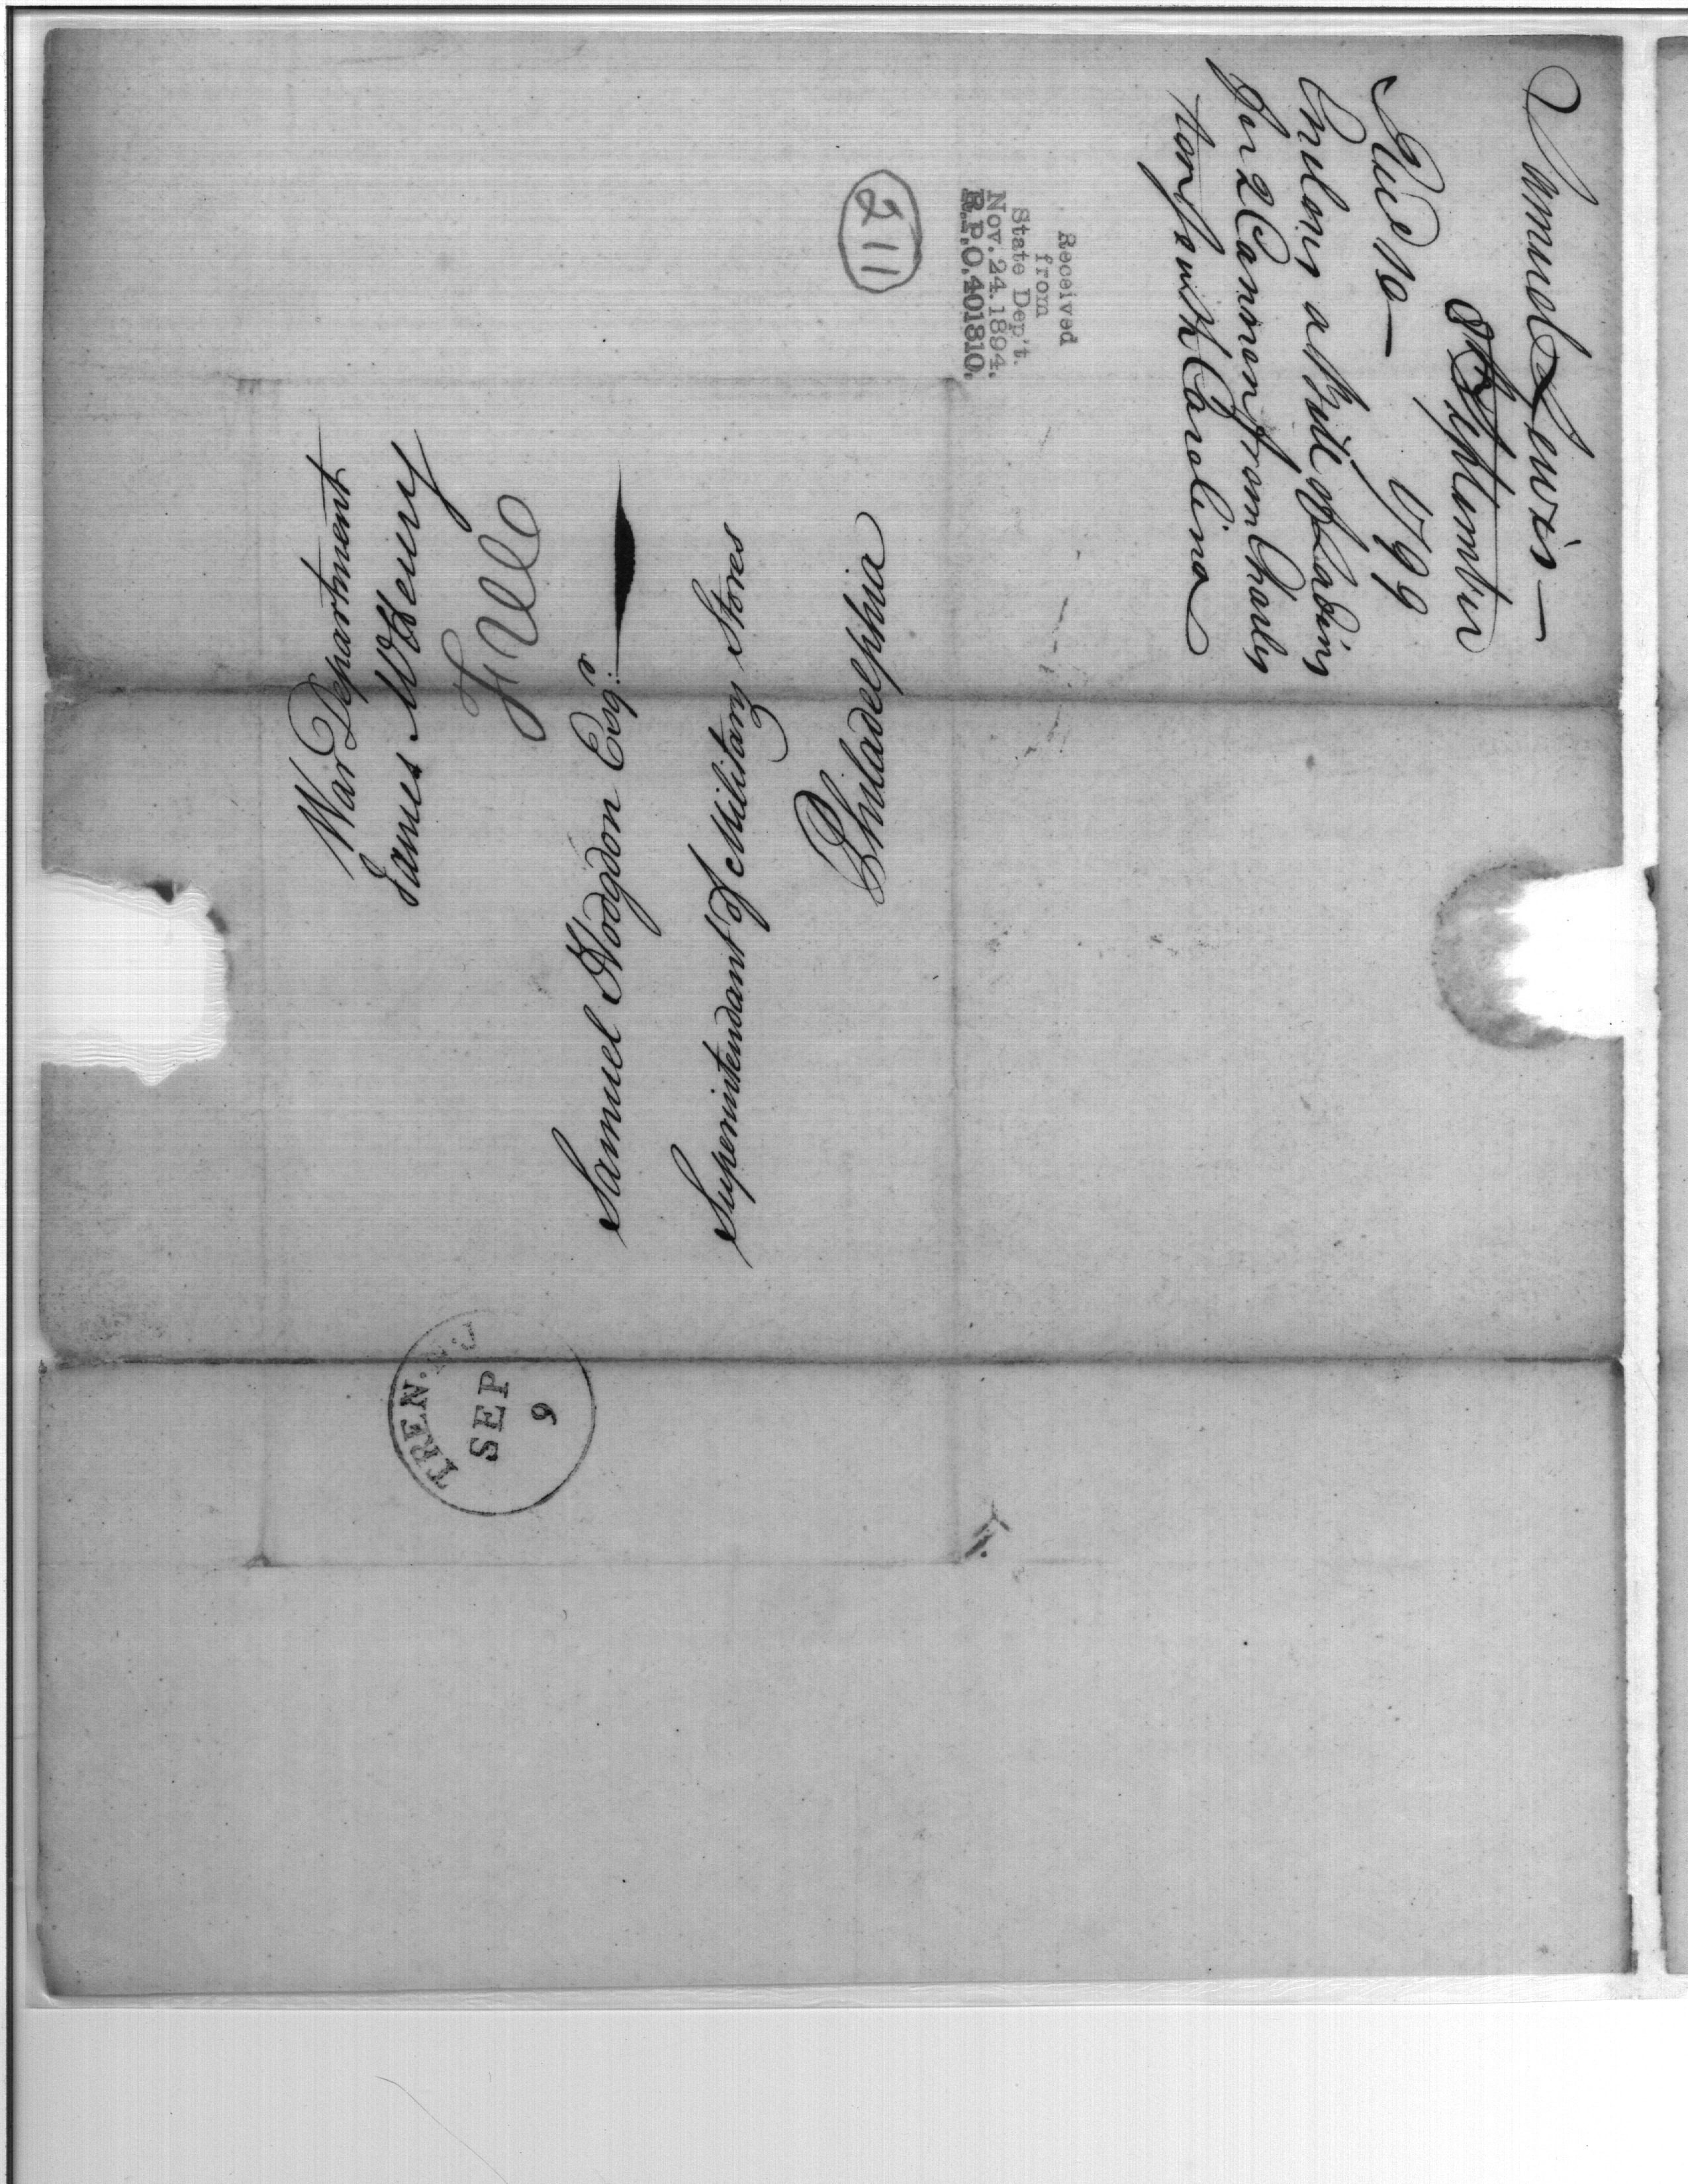 Samuel Lewis—
8th September
1799
Recd 10—
Enclos's a Bill of Lading
for 2 Cannon from Charles
ton South Carolina
Received
from
State Dep't.
Nov. 24. 1894.
R.P.O. 401810.
211
War Department
James McHenry
Free
Samuel Hodgdon Esqr.
Superintendant of Military Stores
Philadelphia
TREN. N J
SEP
9